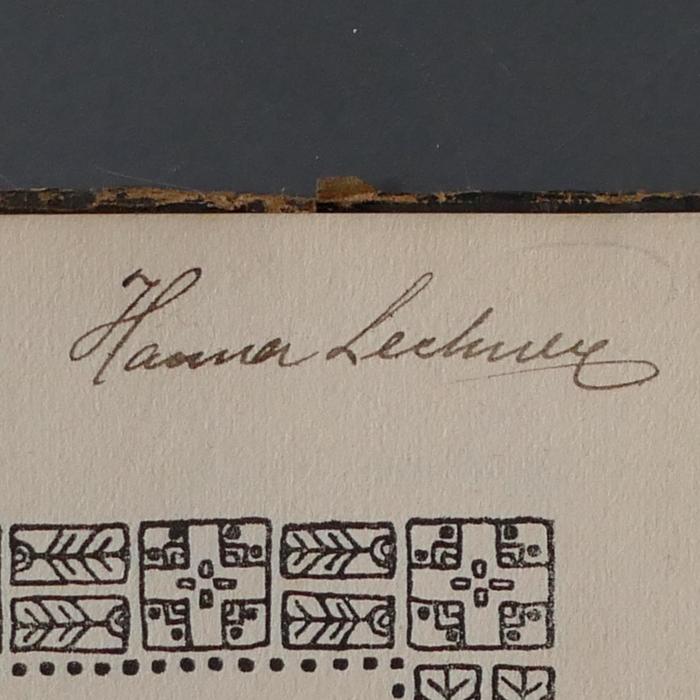 Hanna Lechner